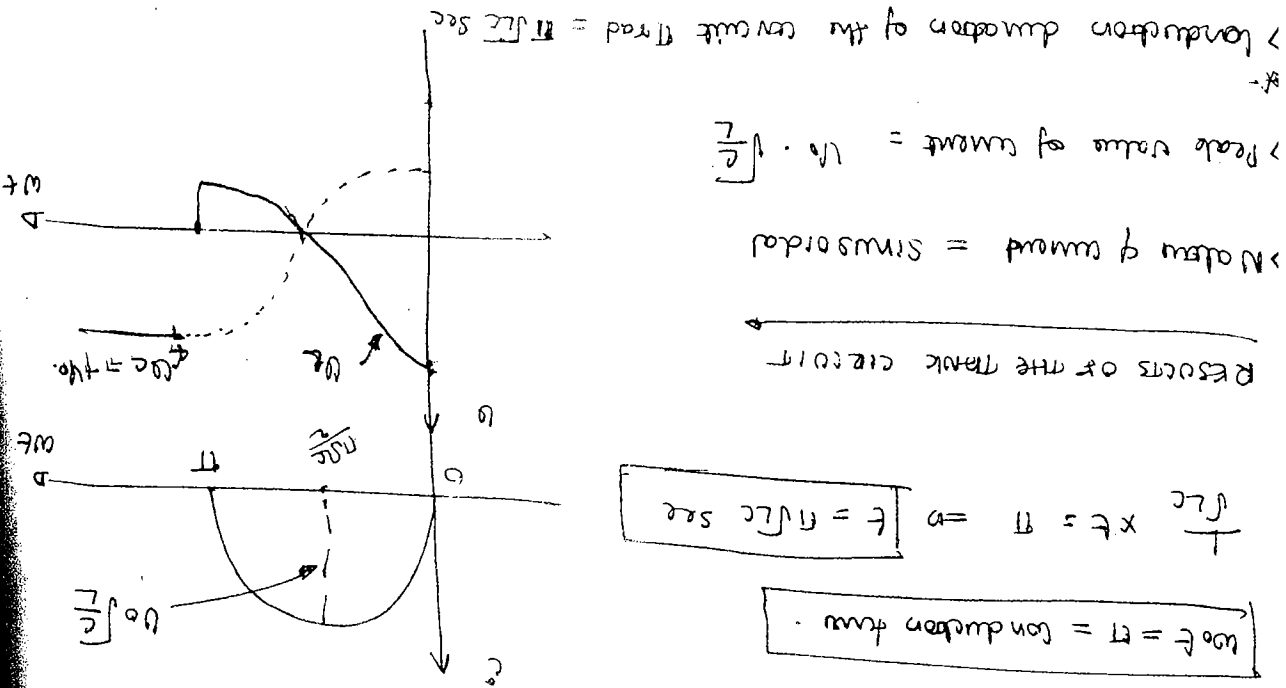 ω₀t = π = conduction time.
1/√LC × t = π ⇒ t = π√LC sec
RESULTS OF THE TANK CIRCUIT
> Nature of current = Sinusoidal
> Peak value of current = V₀ · √C/L
*-
> Conduction duration of the circuit π rad = π√LC sec
i
V₀√C/L
0
π√LC/2
π
ωt
V
V_L
V_C = +V₀.
ωt